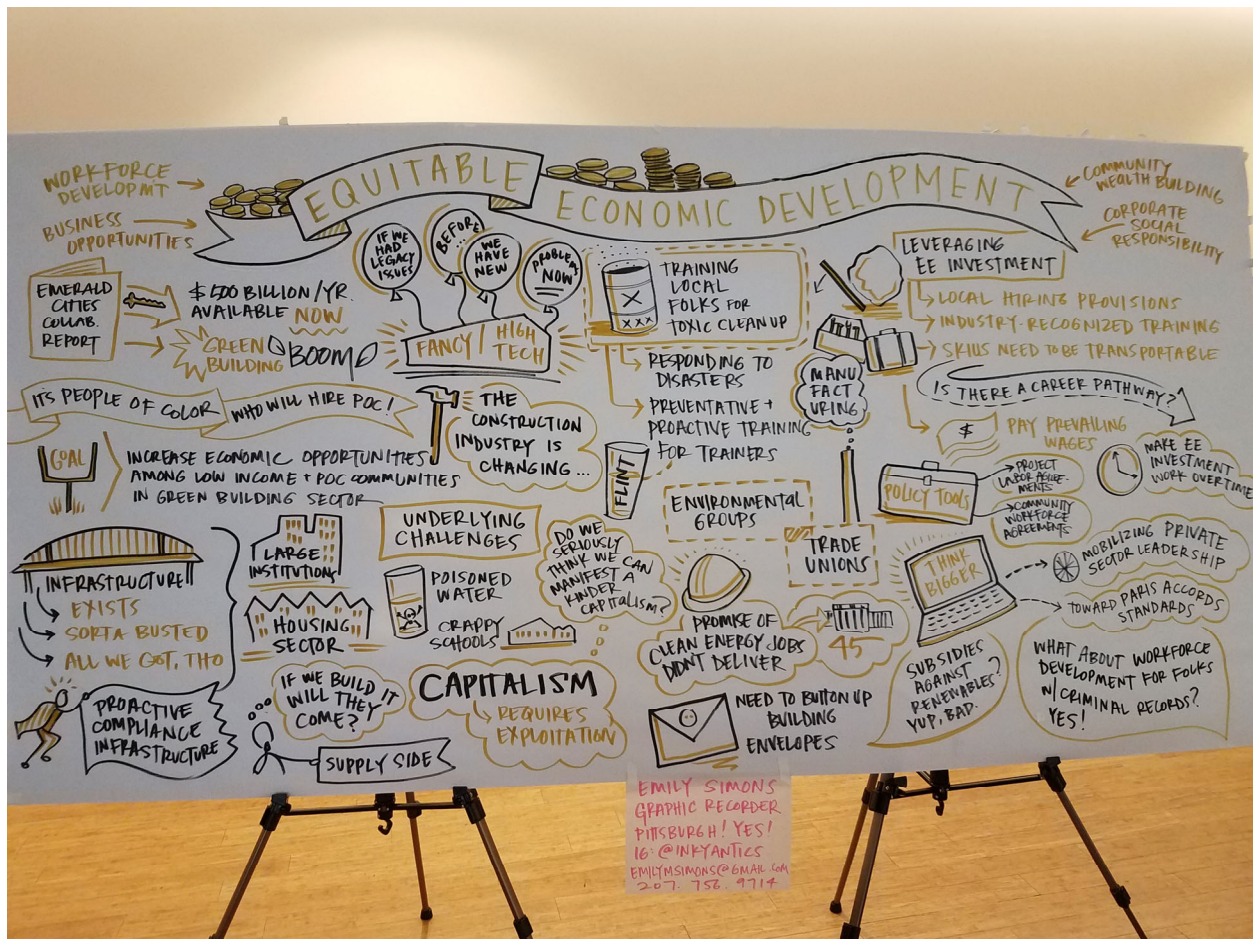 WORKFORCE
DEVELOPMT
BUSINESS
OPPORTUNITIES
EQUITABLE
ECONOMIC DEVELOPMENT
COMMUNITY
WEALTH BUILDING
CORPORATE
SOCIAL
RESPONSIBILITY
EMERALD
CITIES
COLLAB.
REPORT
$500 BILLION/YR.
AVAILABLE NOW
GREEN
BUILDING BOOM
IF WE
HAD
LEGACY
ISSUES
BEFORE
...
WE
HAVE
NEW
PROBLEMS
NOW
FANCY/HIGH
TECH
TRAINING
LOCAL
FOLKS FOR
TOXIC CLEAN UP
X
XXX
RESPONDING TO
DISASTERS
PREVENTATIVE +
PROACTIVE TRAINING
FOR TRAINERS
LEVERAGING
EE INVESTMENT
LOCAL HIRING PROVISIONS
INDUSTRY-RECOGNIZED TRAINING
SKILLS NEED TO BE TRANSPORTABLE
MANU
FACT
URING
IS THERE A CAREER PATHWAY?
$
PAY PREVAILING
WAGES
IT'S PEOPLE OF COLOR
WHO WILL HIRE POC!
GOAL
INCREASE ECONOMIC OPPORTUNITIES
AMONG LOW INCOME + POC COMMUNITIES
IN GREEN BUILDING SECTOR
THE
CONSTRUCTION
INDUSTRY IS
CHANGING...
FLINT
POLICY TOOLS
PROJECT
LABOR AGREE-
MENTS
COMMUNITY
WORKFORCE
AGREEMENTS
MAKE EE
INVESTMENT
WORK OVERTIME
INFRASTRUCTURE
EXISTS
SORTA BUSTED
ALL WE GOT, THO
LARGE
INSTITUTIONS
HOUSING
SECTOR
UNDERLYING
CHALLENGES
POISONED
WATER
CRAPPY
SCHOOLS
DO WE
SERIOUSLY
THINK WE CAN
MANIFEST A
KINDER
CAPITALISM?
ENVIRONMENTAL
GROUPS
TRADE
UNIONS
PROMISE OF
CLEAN ENERGY JOBS
DIDN'T DELIVER
45
THINK
BIGGER
MOBILIZING PRIVATE
SECTOR LEADERSHIP
TOWARD PARIS ACCORDS
STANDARDS
PROACTIVE
COMPLIANCE
INFRASTRUCTURE
IF WE BUILD IT
WILL THEY
COME?
SUPPLY SIDE
CAPITALISM
REQUIRES
EXPLOITATION
NEED TO BUTTON UP
BUILDING
ENVELOPES
SUBSIDIES
AGAINST
RENEWABLES?
YUP, BAD.
WHAT ABOUT WORKFORCE
DEVELOPMENT FOR FOLKS
W/ CRIMINAL RECORDS?
YES!
EMILY SIMONS
GRAPHIC RECORDER
PITTSBURGH! YES!
IG: @INKYANTICS
EMILYMSIMONS@GMAIL.COM
207.756.9714